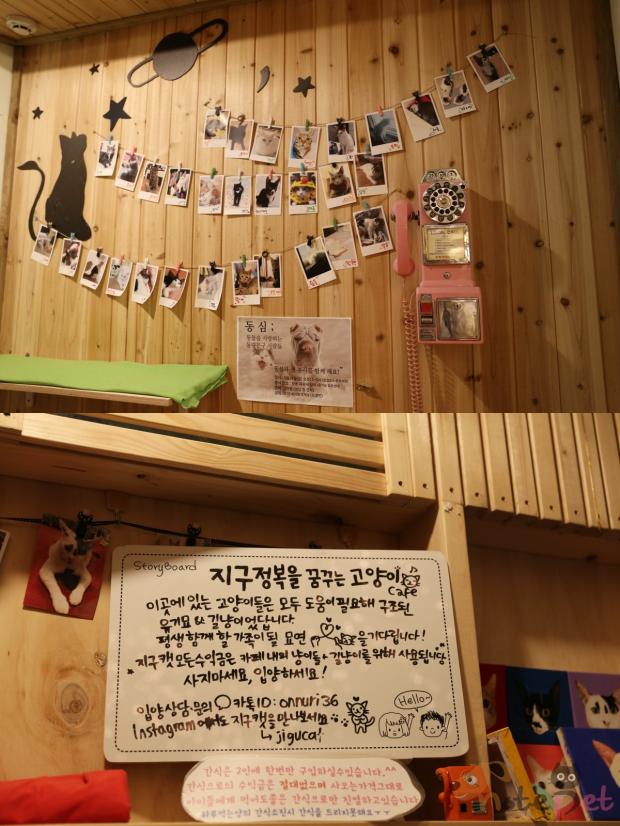 동심 ;
동물을 사랑하는
StoryBoard
지구정복을 꿈꾸는 고양이
Cafe
이곳에 있는 고양이들은 모두 도움이 필요해 구조된
유기묘 & 길냥이었답니다.
평생 함께 할 가족이 될 묘연 을 기다립니다!
지구캣 모든수익금은 카페 내의 냥이들+길냥이를 위해 사용됩니다.
사지마세요, 입양하세요!
입양상담·문의 카톡ID: onnuri36
Instagram에서도 지구캣을 만나보세요
↳ jigucat
Hello~
간식은 2인에 한번만 구입하실수있습니다.^^
간식으로의 수익금은 절대없으며 사오는가격그대로
아이들에게 먹어도좋은 간식으로만 진열하고있습니다
하루먹는양의 간식소진시 간식을 드리지못해요ㅜㅜ